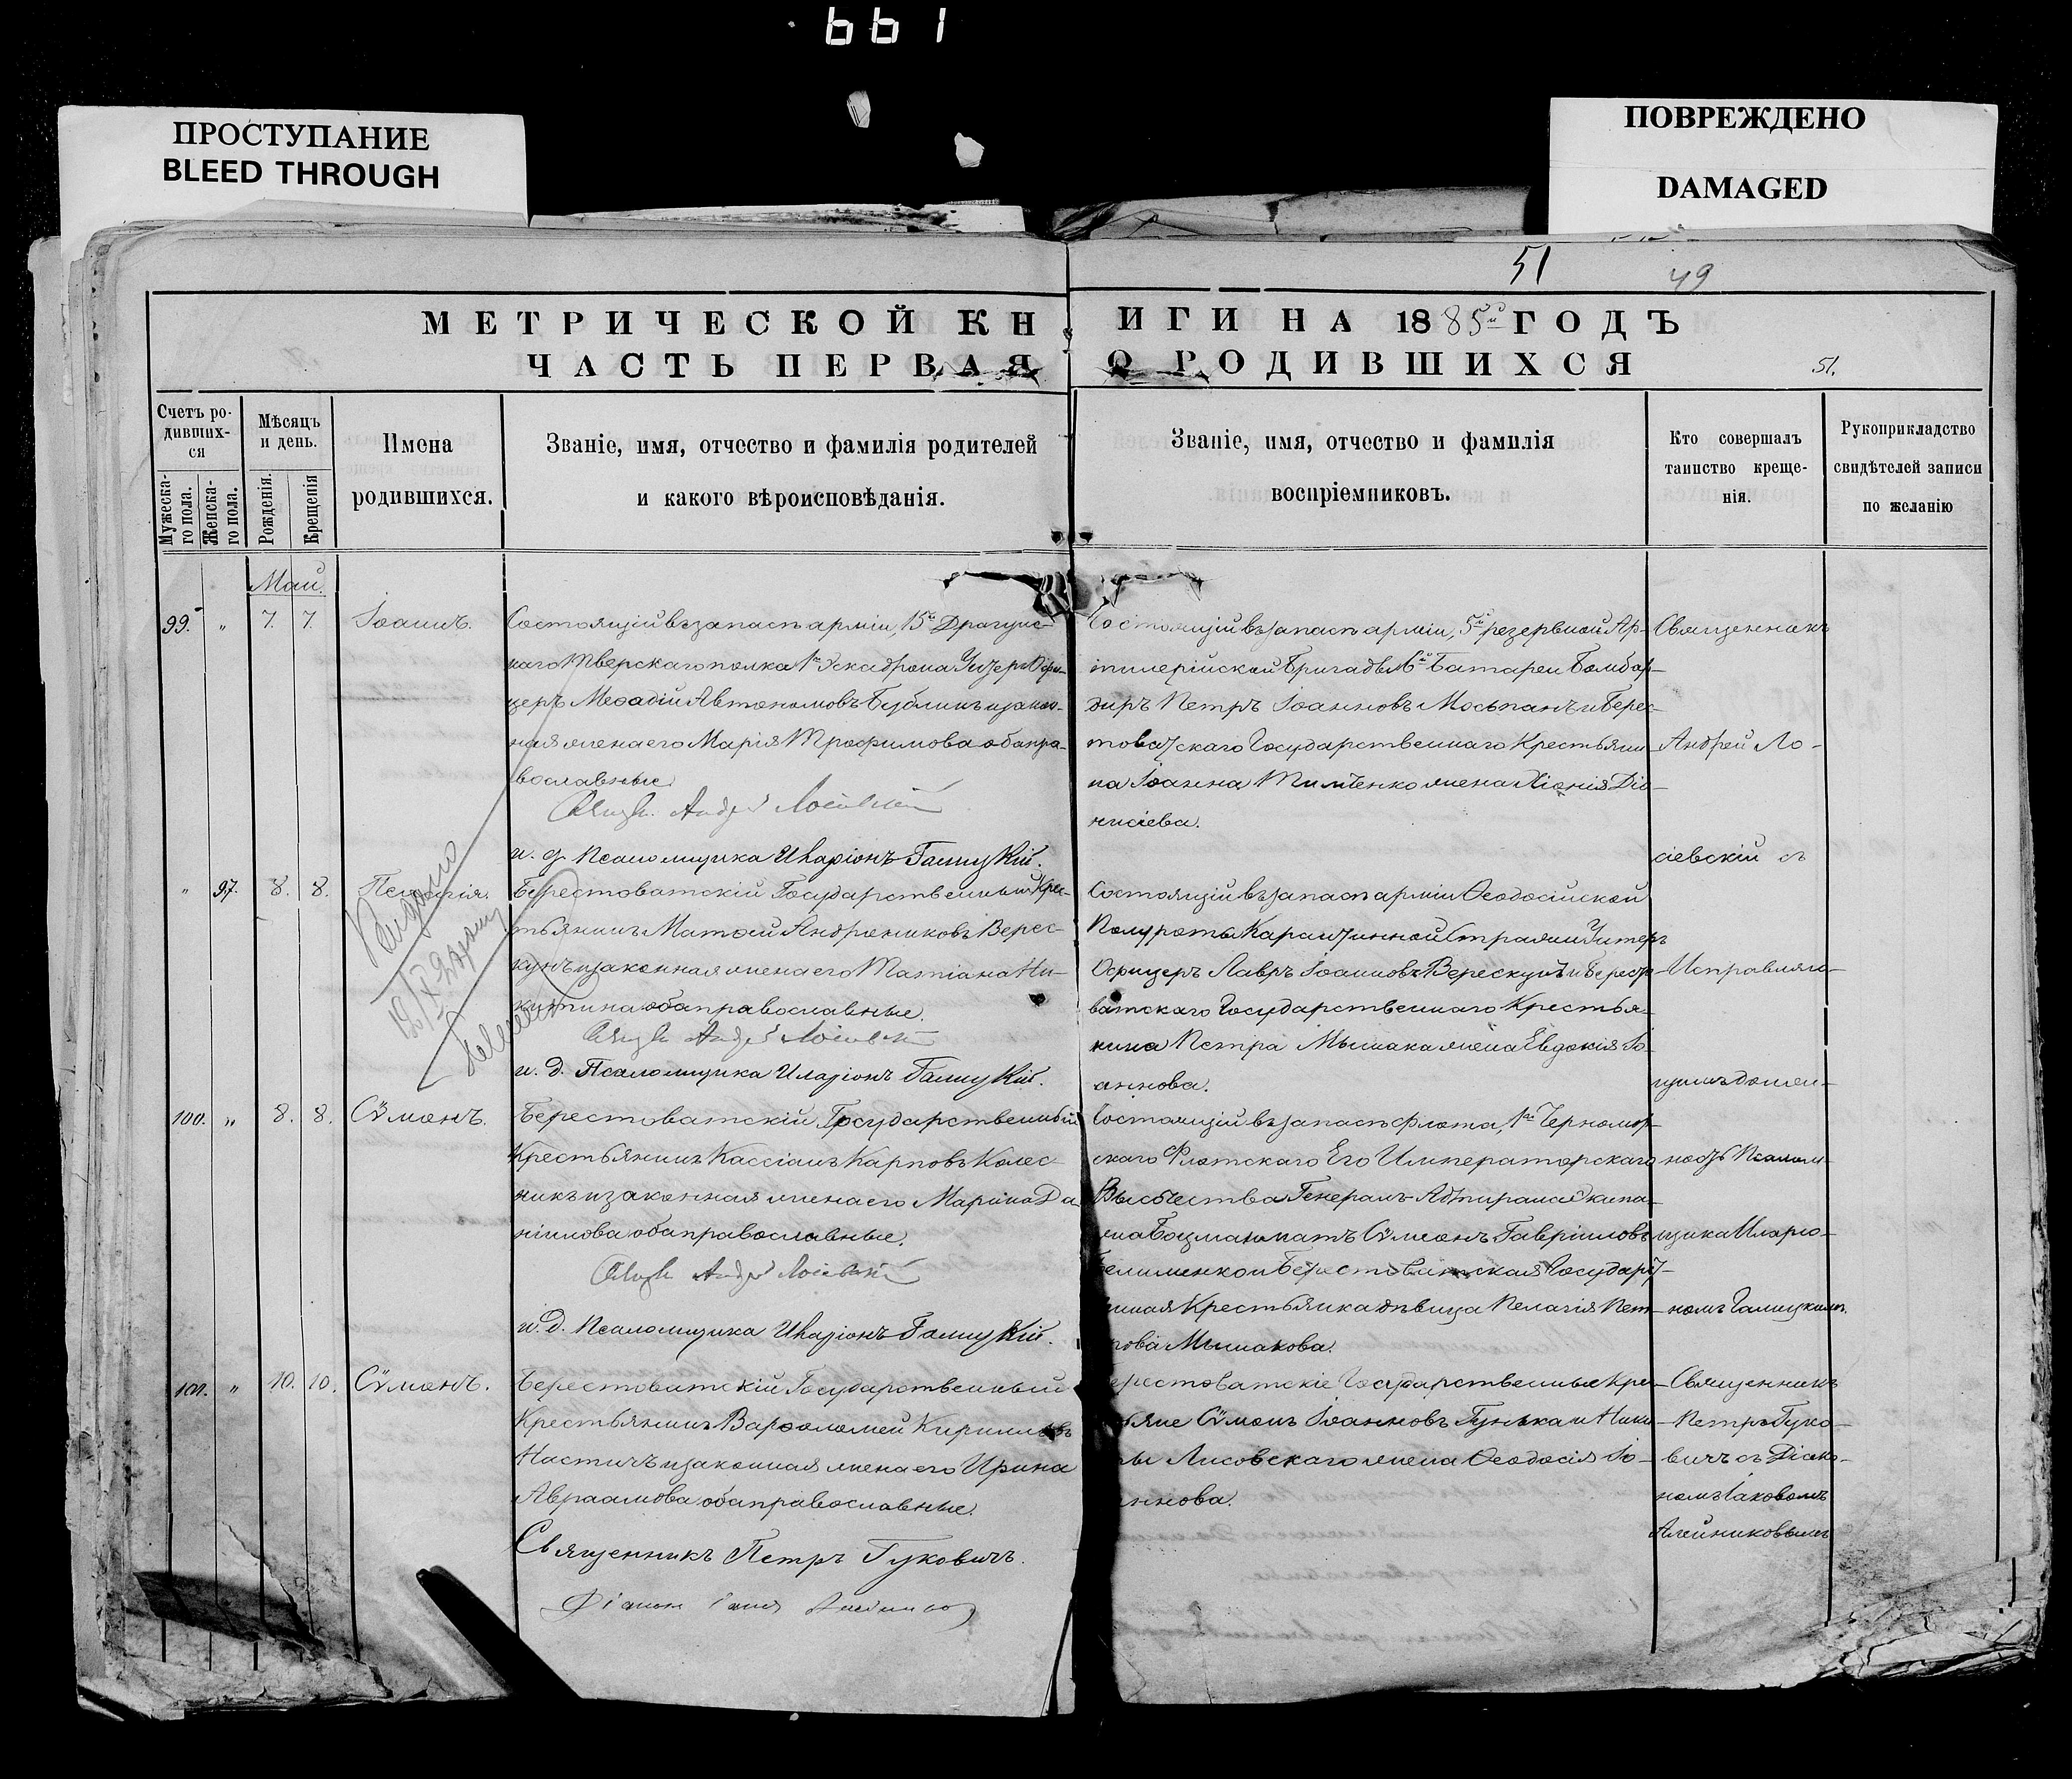 661
ПРОСТУПАНИЕ
BLEED THROUGH
ПОВРЕЖДЕНО
DAMAGED
51
49
МЕТРИЧЕСКОЙ КНИГИ НА 1885й ГОДЪ
ЧАСТЬ ПЕРВАЯ О РОДИВШИХСЯ
51.
Счетъ ро-
дивших-
ся
Мужеска-
го пола.
Женска-
го пола.
Мѣсяцъ
и день.
Рожденія.
Крещенія
Имена
родившихся.
Званіе, имя, отчество и фамилія родителей
и какого вѣроисповѣданія.
Званіе, имя, отчество и фамилія
воспріемниковъ.
Кто совершалъ
таинство креще-
нія.
Рукоприкладство
свидѣтелей записи
по желанію
Май.
99. " 7. 7. Іоаннъ.
Состоящій въ запасѣ арміи, 15го Драгунс-
каго Тверскаго полка 1го Эскадрона Унтеръ Офи-
церъ Меѳодій Автономовъ Бубликъ и закон-
ная жена его Марія Трофимова оба пра-
вославные
Андрей Лосіевскій
и. д. Псаломщика Иларіонъ Галицкій.
Состоящій въ запасѣ арміи, 5й резервной Ар-
тилерійской Бригады 6й Батареи Бомбар-
диръ Петръ Іоанновъ Мосьпанъ и Берес-
товатскаго Государственнаго Крестьяни-
на Іоанна Тимченко жена Хіонія Діо-
нисіева.
Священникъ
Андрей Ло-
сіевскій съ
" 97. 8. 8. Пелагія.
Берестоватскій Государственный Крес-
тьянинъ Матѳей Андрониковъ Верес-
кунъ и законная жена его Татіана Ни-
китина оба православные.
Андрей Лосіевскій
и. д. Псаломщика Иларіонъ Галицкій.
Состоящій въ запасѣ арміи Ѳеодосійской
Полуроты Карантинной Стражи Унтеръ
Офицеръ Лавръ Іоанновъ Верескунъ и Бересто-
ватскаго Государственнаго Крестья-
нина Петра Мышака жена Евдокія Іо-
аннова.
Исправляю-
щимъ долж-
100. " 8. 8. Сѵмеонъ.
Берестоватскій Государственный
Крестьянинъ Кассіанъ Карповъ Колес-
никъ и законная жена его Марина Да
ніилова оба православные.
Андрей Лосіевскій
и. д. Псаломщика Иларіонъ Галицкій.
Состоящій въ запасѣ флота, 1го Черномор-
скаго Флотскаго Его Императорскаго
Высочества Генералъ-Адмирала экипа-
жа Боцманматъ Сѵмеонъ Гавріиловъ
Государст-
Крестьянка дѣвица Пелагія Пет-
рова Мышакова.
ность Псалом-
щика Иларіо-
номъ Галицкимъ.
101. " 10. 10. Сѵмеонъ.
Берестоватскій Государственный
Крестьянинъ Варѳоломей Кирилловъ
Настичъ и законная жена его Ирина
Авраамова оба православные.
Священникъ Петръ Гуковичъ.
Берестоватскіе Государственные Кре-
стьяне Сѵмеонъ Іоанновъ Гунька и Ники-
ты Лисовскаго жена Ѳеодосія Іо-
аннова.
Священникъ
Петръ Гуко-
вичъ съ Діако-
номъ Іаковомъ
Алейниковымъ